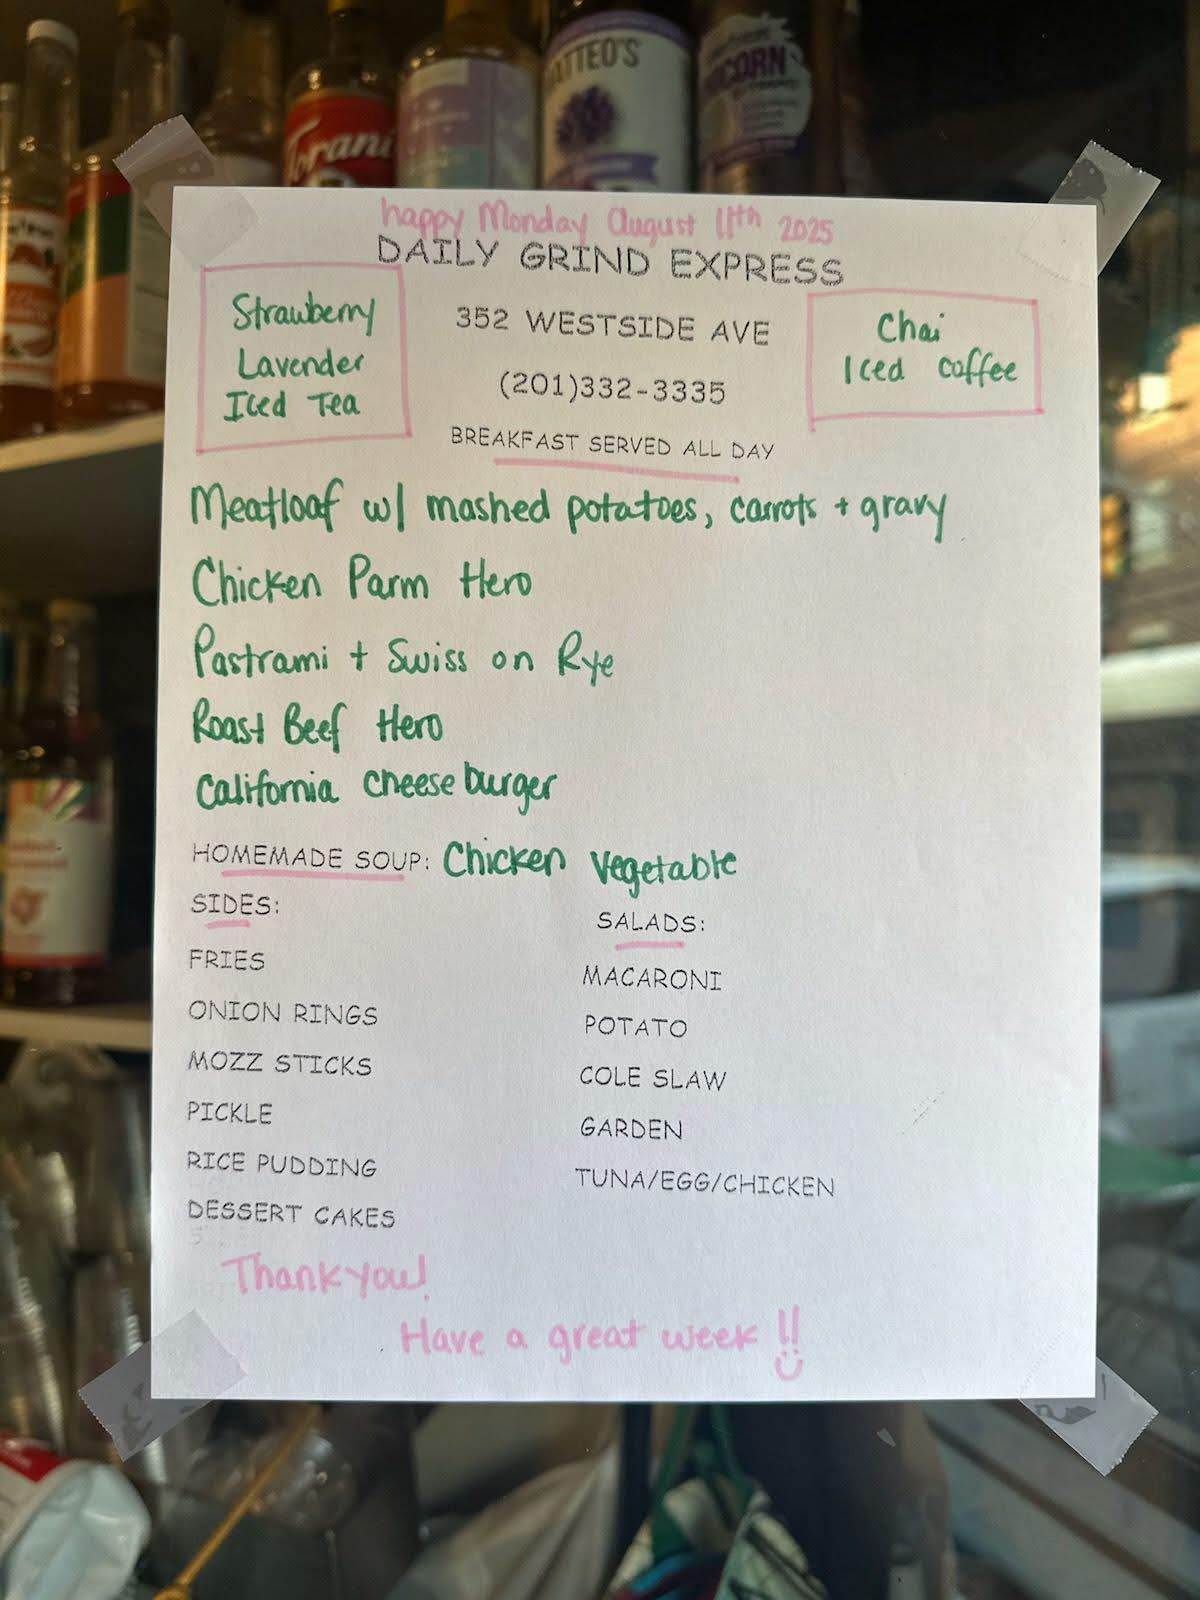 Torani
ATTEO'S
happy Monday August 11th 2025
DAILY GRIND EXPRESS
Strawberry
Lavender
Iced Tea
352 WESTSIDE AVE
(201)332-3335
BREAKFAST SERVED ALL DAY
Chai
Iced coffee
Meatloaf w/ mashed potatoes, carrots + gravy
Chicken Parm Hero
Pastrami + Swiss on Rye
Roast Beef Hero
California cheeseburger
HOMEMADE SOUP: Chicken Vegetable
SIDES:
FRIES
ONION RINGS
MOZZ STICKS
PICKLE
RICE PUDDING
DESSERT CAKES
SALADS:
MACARONI
POTATO
COLE SLAW
GARDEN
TUNA/EGG/CHICKEN
Thank you!
Have a great week !!